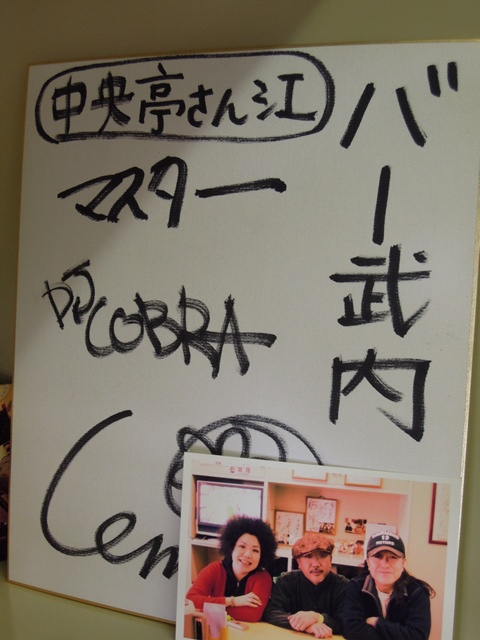 バー武内
中央亭さん江
マスター
DJ COBRA